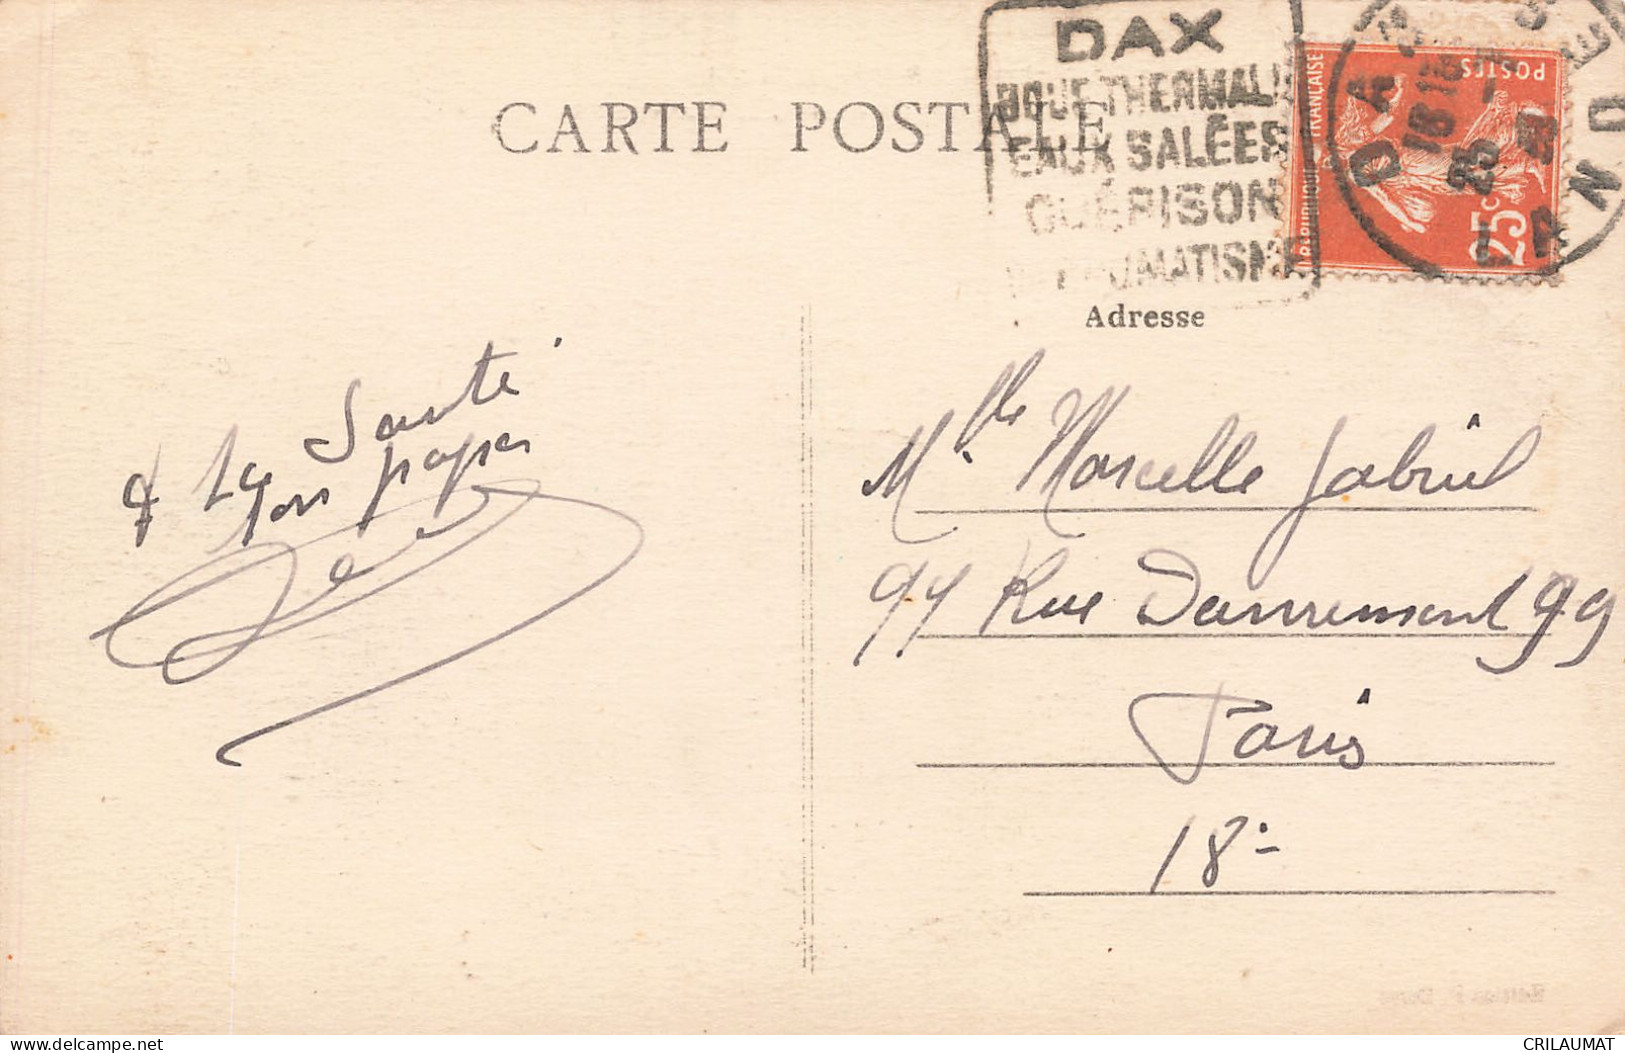 CARTE POSTALE
DAX
BOUE THERMALE
EAUX SALÉES
GUÉRISON
RHUMATISME
RÉPUBLIQUE FRANÇAISE
POSTES
25c
DAX
LANDES
Adresse
Santé
ton papa
Mlle Marcelle Gabriel
99 Rue Damremont 99
Paris
18e
CRILAUMAT